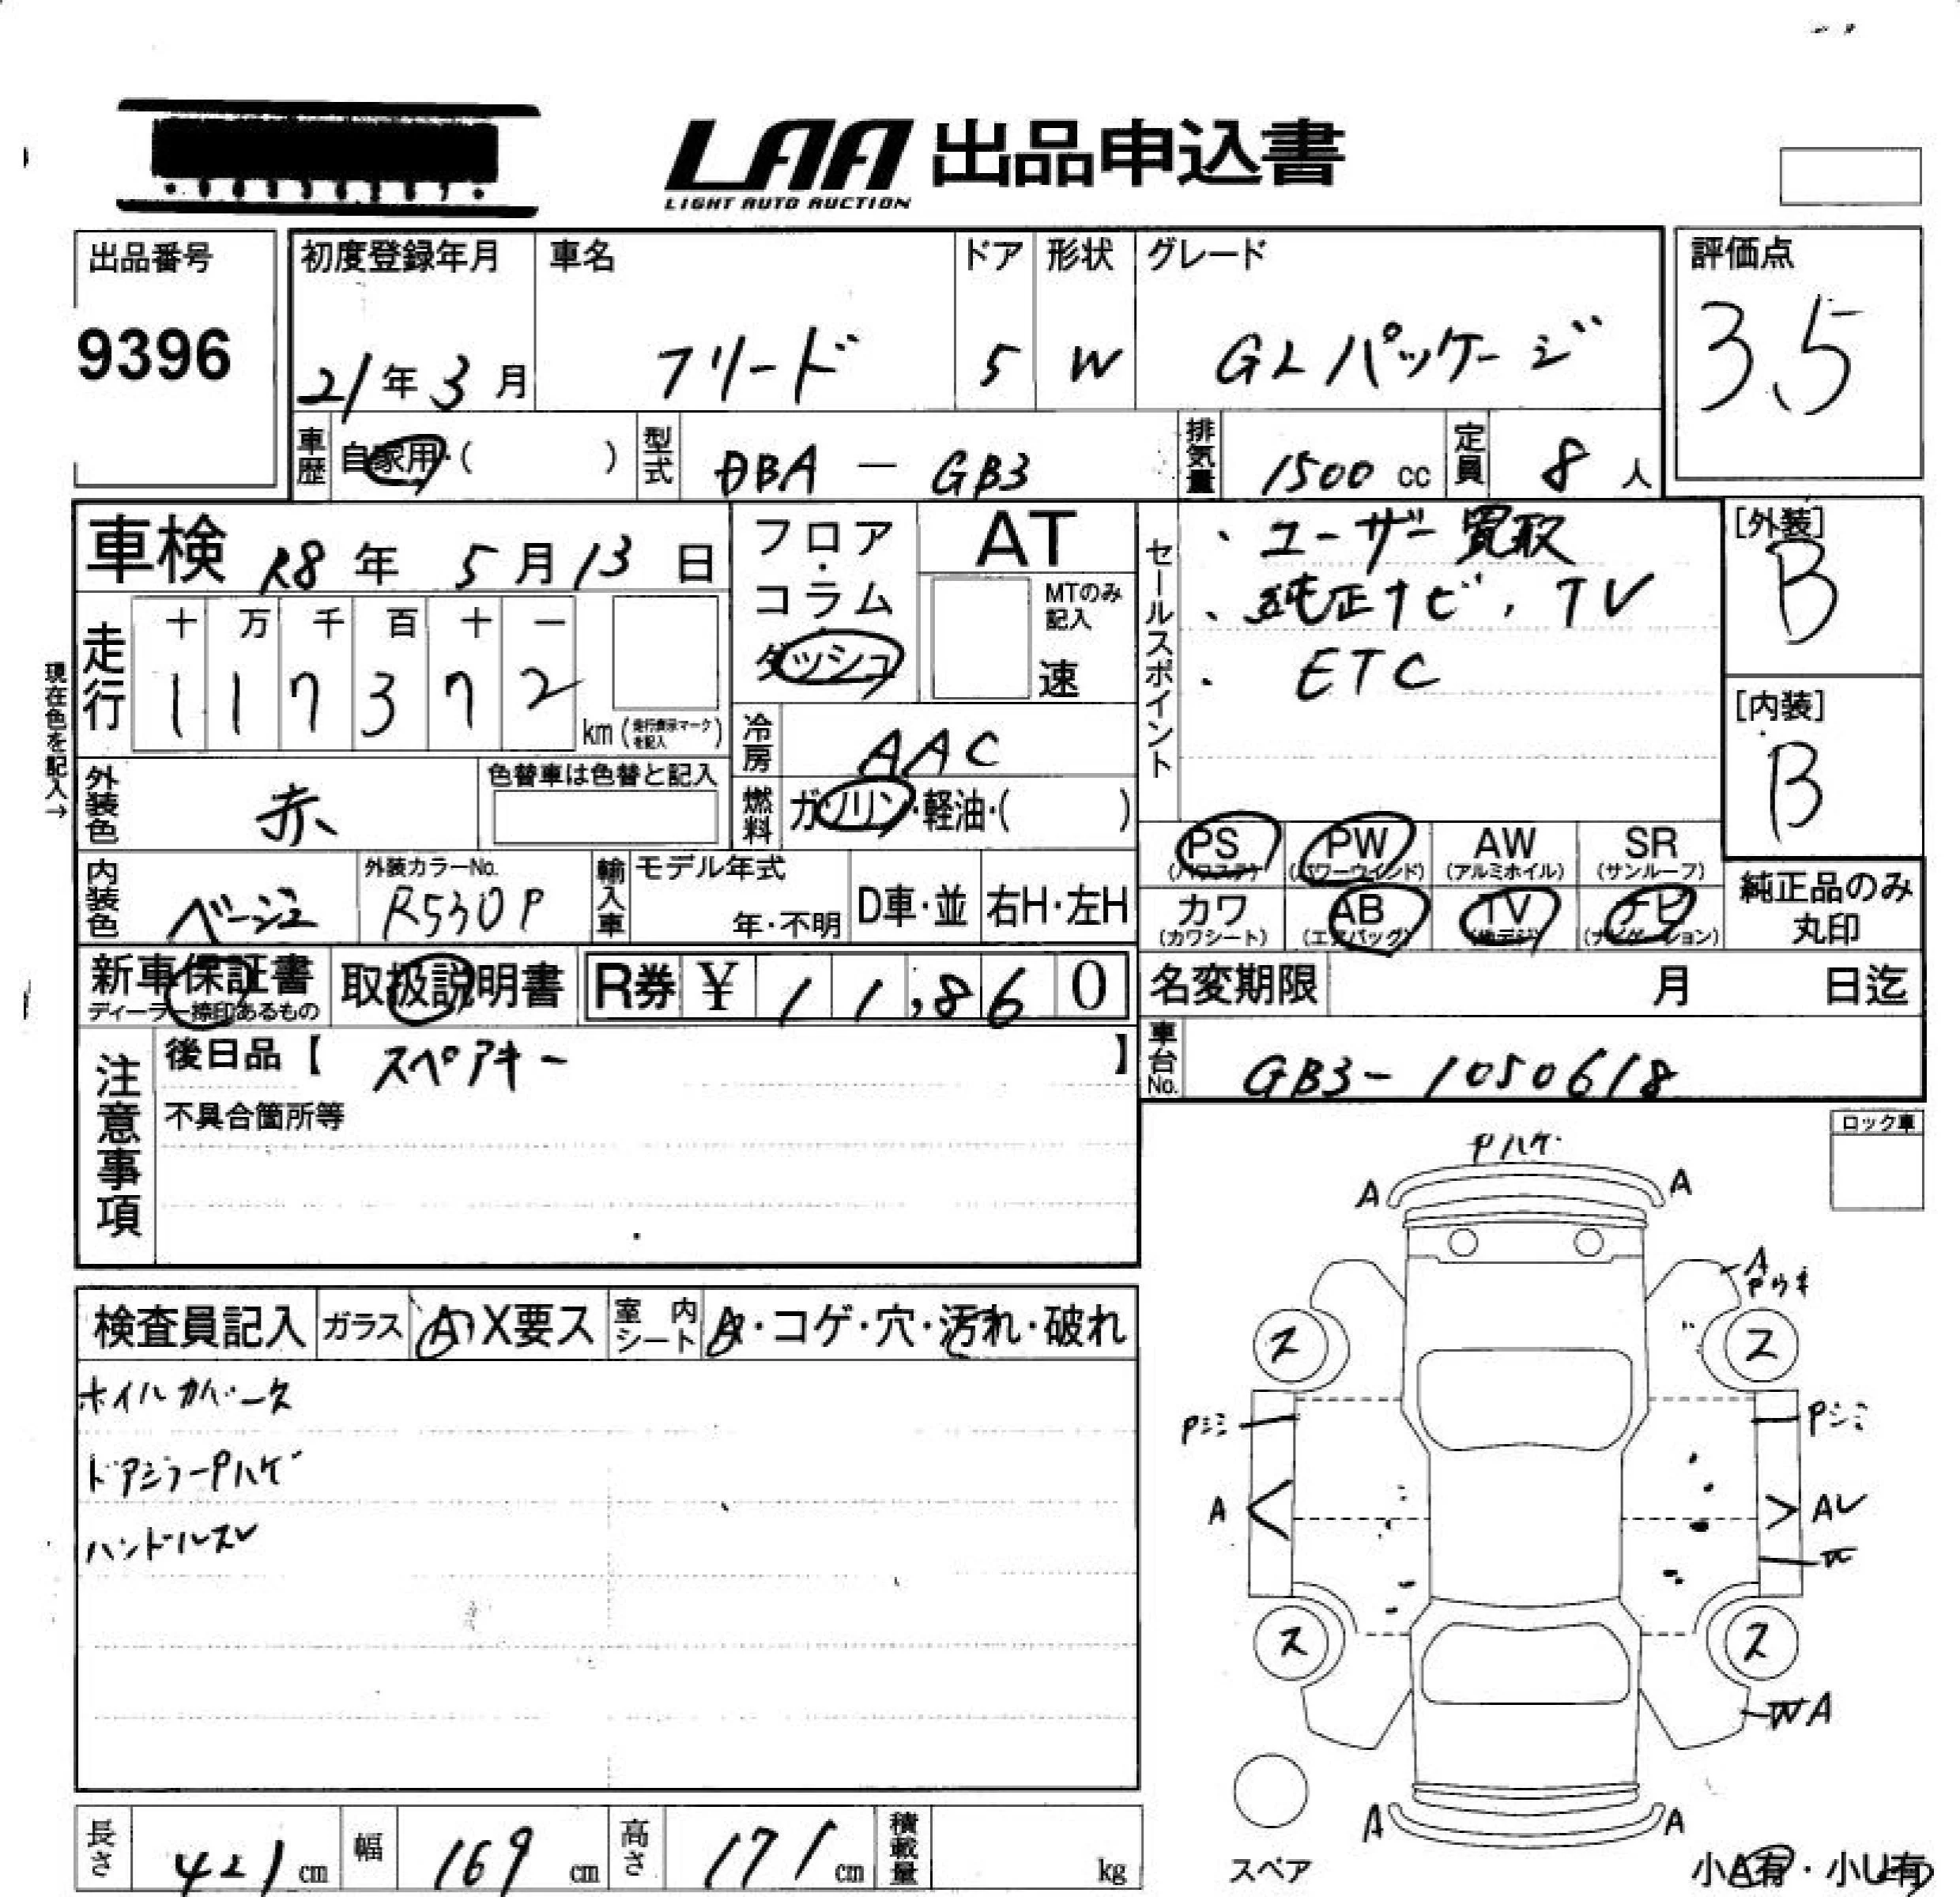 LAA 出品申込書
LIGHT AUTO AUCTION
出品番号
9396
初度登録年月
21年3月
車名
フリード
ドア
5
形状
W
グレード
GLパッケージ
評価点
3.5
車歴 自家用・( )
型式 DBA - GB3
排気量 1500 cc
定員 8 人
車検 R8年 5月13日
現在色を記入→
走行
十 万 千 百 十 一
1 1 7 3 7 2
km (走行表示マークを記入)
フロア・コラム
ダッシュ
AT
MTのみ記入
速
冷房 AAC
燃料 ガソリン・軽油・( )
セールスポイント
、ユーザー買取
、純正ナビ,TV
、ETC
[外装]
B
[内装]
B
外装色 赤
色替車は色替と記入
内装色 ベージュ
外装カラーNo.
R530P
輸入車 モデル年式
年・不明
D車・並
右H・左H
PS (パワステ)
PW (パワーウインド)
AW (アルミホイル)
SR (サンルーフ)
カワ (カワシート)
AB (エアバッグ)
TV (地デジ)
ナビ (ナビゲーション)
純正品のみ
丸印
新車保証書
ディーラー捺印あるもの
取扱説明書
R券 ¥ 11,860
名変期限 月 日迄
車台No. GB3-1050618
注意事項
後日品【 スペアキー 】
不具合箇所等
ロック車
検査員記入
ガラス A X要ス
室内シート ・コゲ・穴・汚れ・破れ
ホイルカバース
ドアミラーPハゲ
ハンドルスレ
Pハゲ
A
A
A
Pウキ
ス
ス
Pシミ
Pシミ
A
AU
ス
ス
WA
A
A
スペア
小A有・小U有
長さ 421 cm
幅 169 cm
高さ 171 cm
積載量 kg